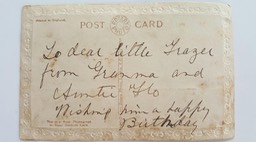 POST CARD
To dear little Frazer
from Granma and
Auntie Flo
Wishing him a happy
Birthday